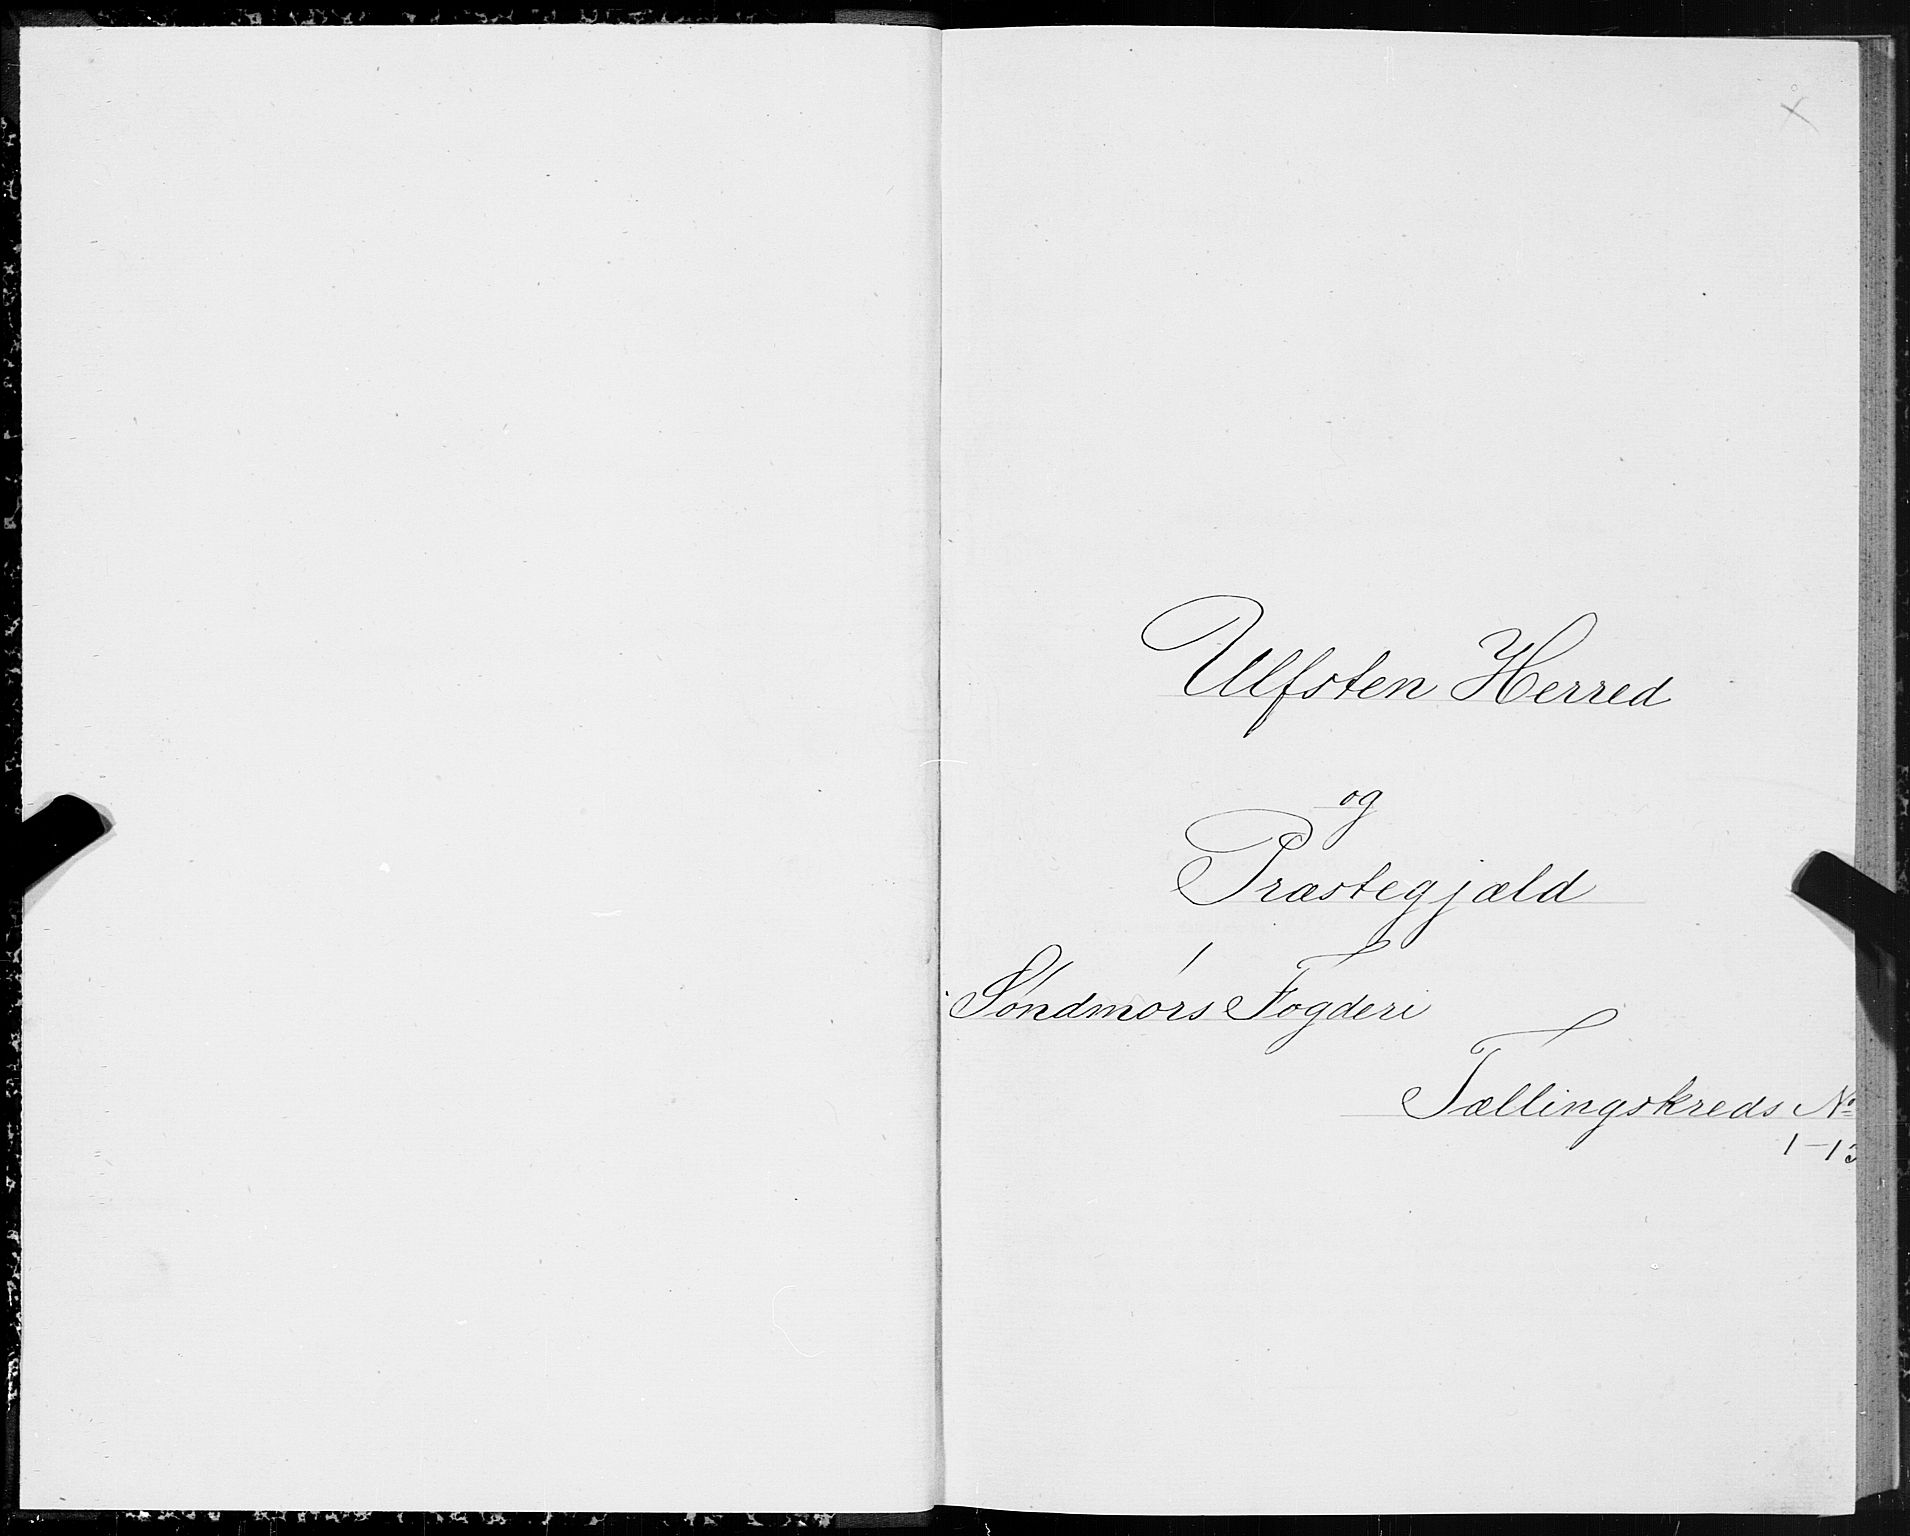 Ulfsten Herred
og
Præstegjæld
Søndmørs Fogderi
Tællingskreds No